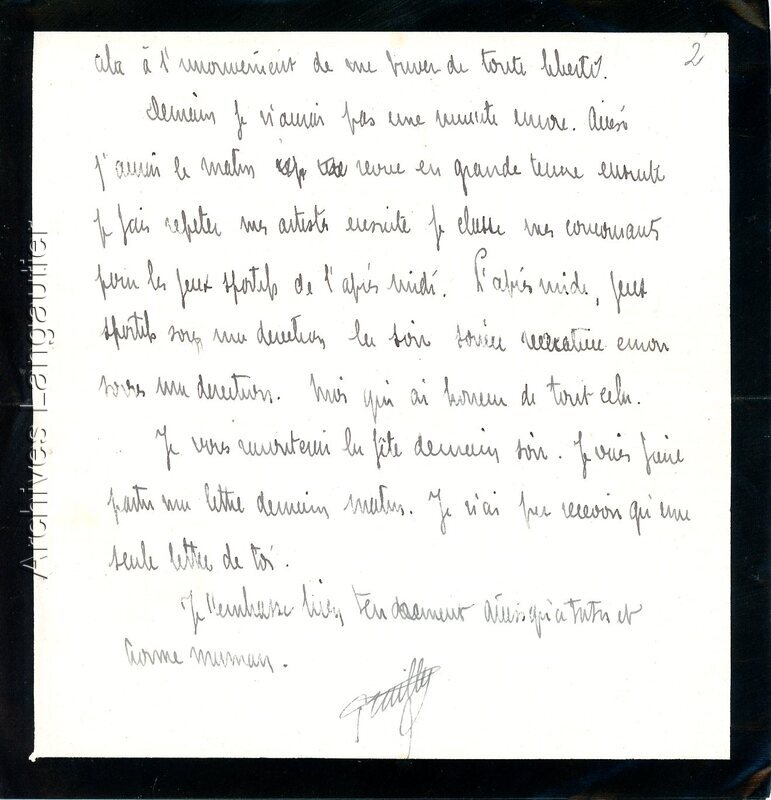 2
cela à l'inconvénient de me priver de toute liberté.
Demain je n'aurai pas une minute encore. Aussi
j'aurai le matin revue en grande tenue ensuite
je fais répéter mes artistes ensuite je classe mes concurrents
pour les jeux sportifs de l'après midi. L'après midi, jeux
sportifs sous ma direction le soir soirée récréative encore
sous ma direction. Moi qui ai horreur de tout cela.
Je vous raconterai la fête demain soir. Je vais faire
partir ma lettre demain matin. Je n'ai pu recevoir qu'une
seule lettre de toi.
Je t'embrasse bien tendrement ainsi qu'a et
bonne maman.
Archives Langautier